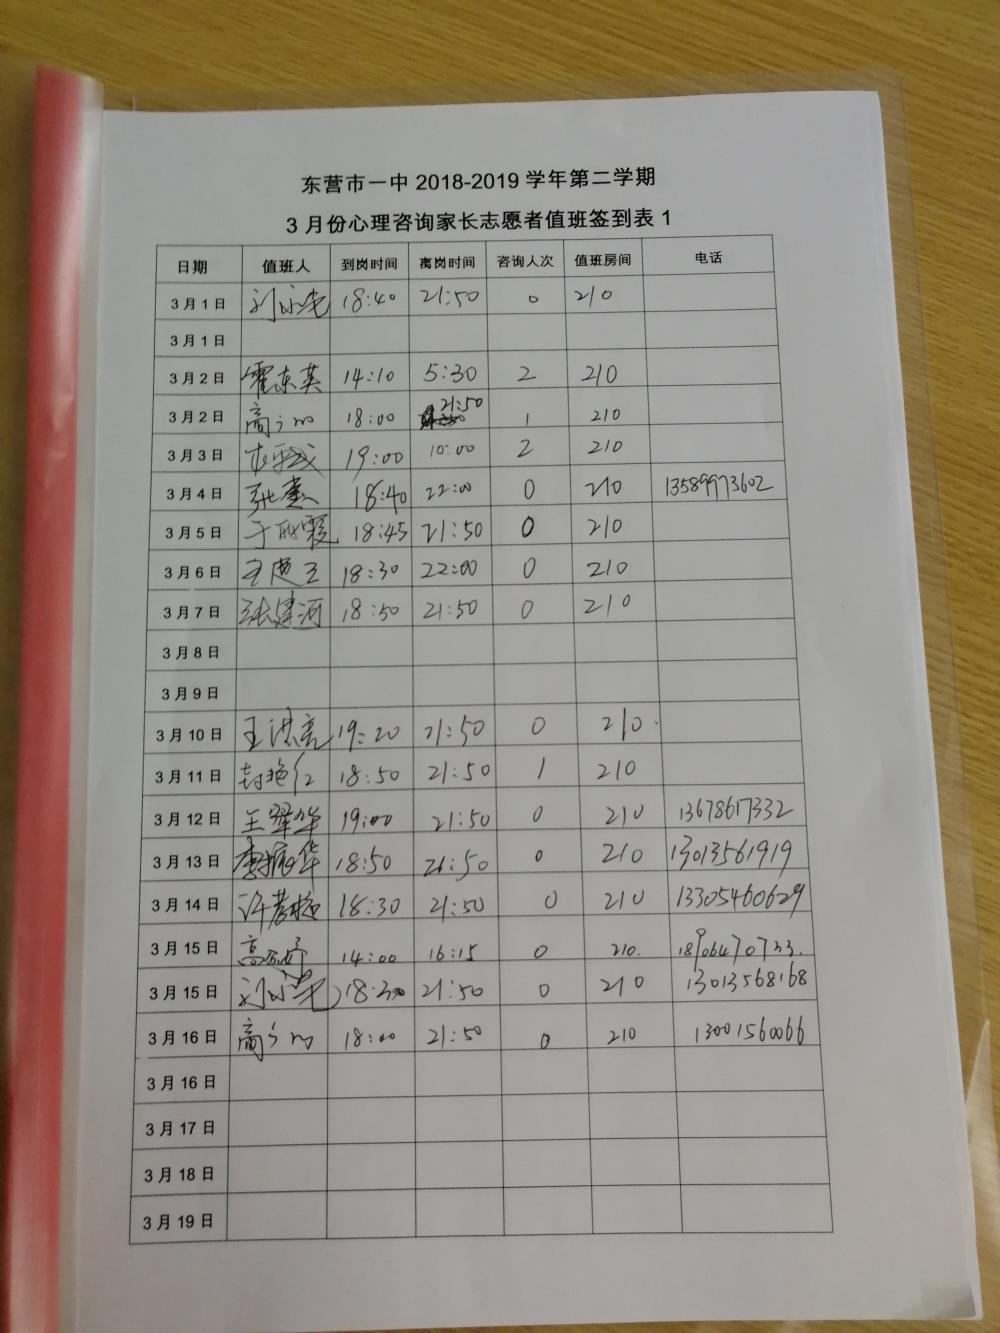 东营市一中 2018-2019 学年第二学期
3 月份心理咨询家长志愿者值班签到表 1
日期 值班人 到岗时间 离岗时间 咨询人次 值班房间 电话
3月1日 18:40 21:50 0 210
3月1日
3月2日 霍东英 14:10 5:30 2 210
3月2日 18:00 21:50 1 210
3月3日 19:00 10:00 2 210
3月4日 18:40 22:00 0 210 13589973602
3月5日 18:45 21:50 0 210
3月6日 18:30 22:00 0 210
3月7日 张建河 18:50 21:50 0 210
3月8日
3月9日
3月10日 王洪亮 19:20 21:50 0 210
3月11日 封艳红 18:50 21:50 1 210
3月12日 王翠华 19:00 21:50 0 210 13678617332
3月13日 18:50 21:50 0 210 13013561919
3月14日 18:30 21:50 0 210 13305460629
3月15日 14:00 16:15 0 210. 18906470733.
3月15日 18:30 21:50 0 210 13013568168
3月16日 18:00 21:50 0 210 13001560066
3月16日
3月17日
3月18日
3月19日